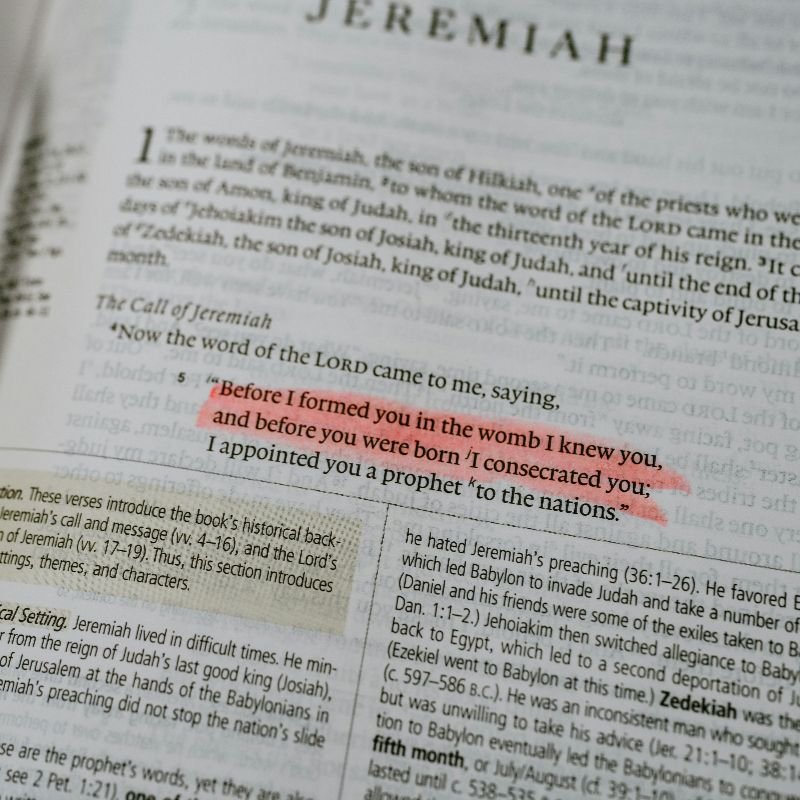 JEREMIAH
1 The words of Jeremiah, the son of Hilkiah, one of the priests who we
in the land of Benjamin, 2to whom the word of the LORD came in the
the son of Amon, king of Judah, in the thirteenth year of his reign. 3It c
days of Jehoiakim the son of Josiah, king of Judah, and until the end of th
of Zedekiah, the son of Josiah, king of Judah, until the captivity of Jerusa
month.
The Call of Jeremiah
4Now the word of the LORD came to me, saying,
5 i“Before I formed you in the womb I knew you,
and before you were born jI consecrated you;
I appointed you a prophet kto the nations.”
tion. These verses introduce the book's historical back-
Jeremiah's call and message (vv. 4–16), and the Lord's
n of Jeremiah (vv. 17–19). Thus, this section introduces
ttings, themes, and characters.
ical Setting. Jeremiah lived in difficult times. He min-
r from the reign of Judah's last good king (Josiah),
of Jerusalem at the hands of the Babylonians in
emiah's preaching did not stop the nation's slide
se are the prophet's words, yet they are also
see 2 Pet. 1:21). one of
he hated Jeremiah's preaching (36:1–26). He favored E
which led Babylon to invade Judah and take a number of
(Daniel and his friends were some of the exiles taken to B
Dan. 1:1–2.) Jehoiakim then switched allegiance to Baby
back to Egypt, which led to a second deportation of Ju
(Ezekiel went to Babylon at this time.) Zedekiah was the
(c. 597–586 B.C.). He was an inconsistent man who sought
but was unwilling to take his advice (Jer. 21:1–10; 38:1
tion to Babylon eventually led the Babylonians to conqu
fifth month, or July/August (cf. 39:1–10)
lasted until c. 538–535